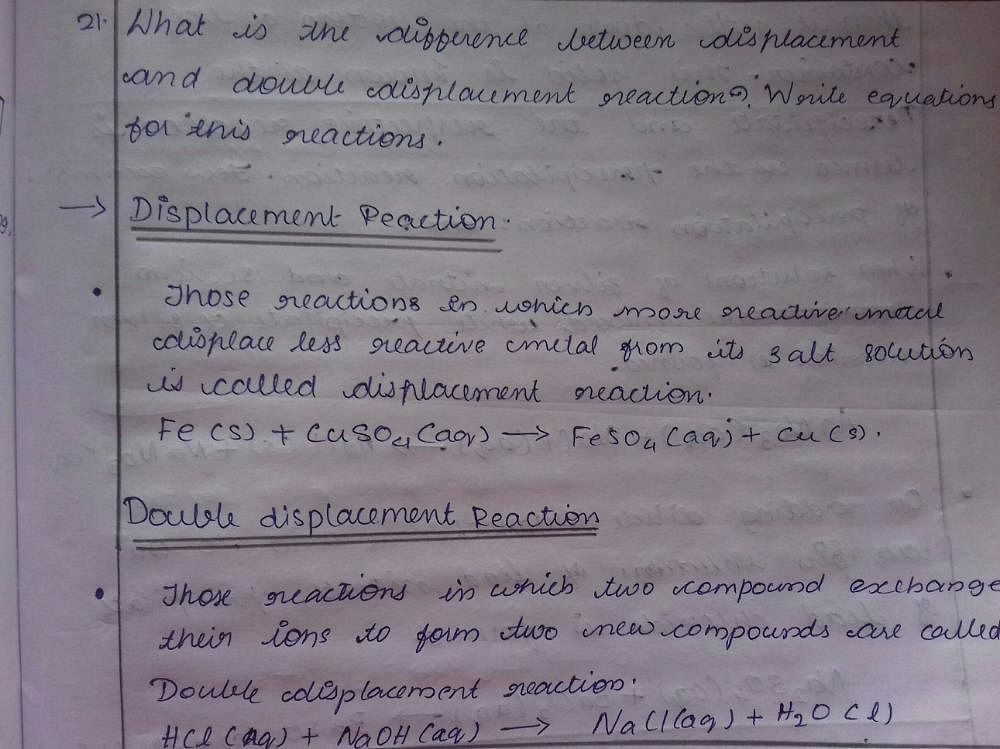 21. What is the difference between displacement
and double displacement reaction?. Write equations
for this reactions.
→ Displacement Reaction.
• Those reactions in which more reactive metal
displace less reactive metal from its salt solution
is called displacement reaction.
Fe (s) + CuSO4 (aq) → FeSO4 (aq) + Cu (s).
Double displacement Reaction
• Those reactions in which two compound exchange
their ions to form two new compounds are called
Double displacement reaction.
HCl (aq) + NaOH (aq) → NaCl (aq) + H2O (l)